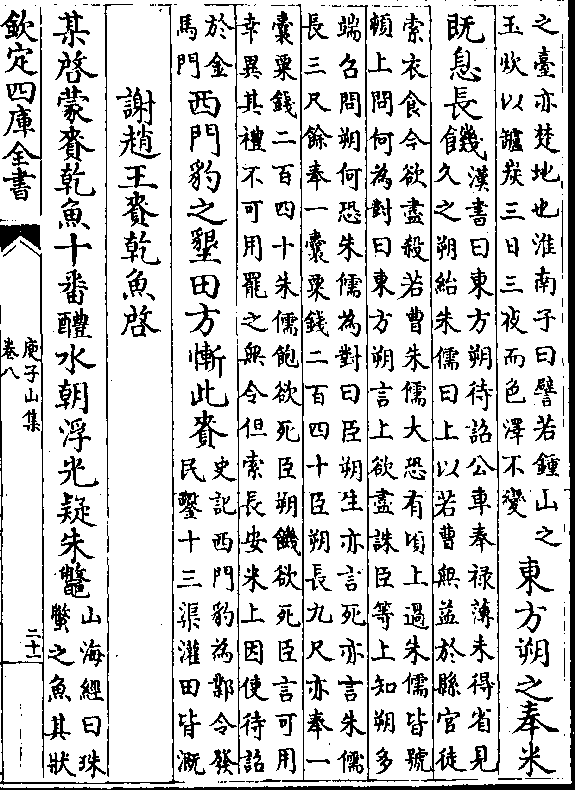 之臺亦楚地也淮南子曰譬若鍾山之
玉炊以罏炭三日三夜而色澤不變
東方朔之奉米
既息長饑
漢書曰東方朔待詔公車奉祿薄未得省見
久之朔紿朱儒曰上以若曹無益於縣官徒
索衣食今欲盡殺若曹朱儒大恐有頃上過朱儒皆號
頓上問何為對曰東方朔言上欲盡誅臣等上知朔多
端召問朔何恐朱儒為對曰臣朔生亦言死亦言朱儒
長三尺餘奉一囊粟錢二百四十臣朔長九尺亦奉一
囊粟錢二百四十朱儒飽欲死臣朔饑欲死臣言可用
幸異其禮不可用罷之無令但索長安米上因使待詔
於金
馬門
西門豹之墾田方慚此賚
史記西門豹為鄴令發
民鑿十三渠灌田皆溉
謝趙王賚乾魚啓
某啓蒙賚乾魚十番醴水朝浮光疑朱鼈
山海經曰珠
蟞之魚其狀
欽定四庫全書
庾子山集
卷八
二十一